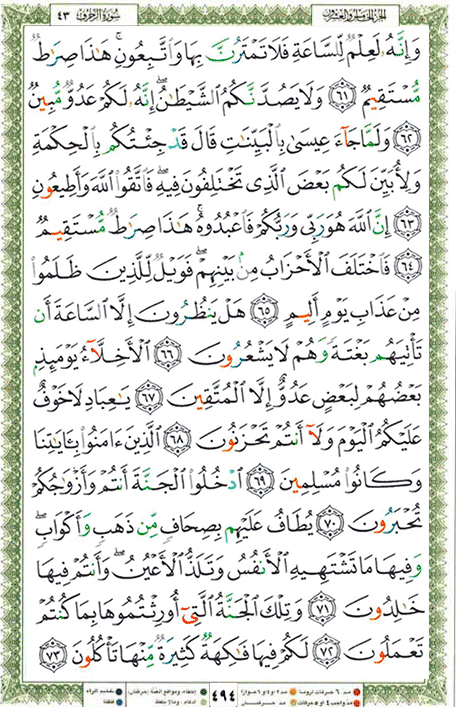 سُورَةُ الزُّخْرُفِ ٤٣
وَإِنَّهُۥ لَعِلْمٌ لِّلسَّاعَةِ فَلَا تَمْتَرُنَّ بِهَا وَٱتَّبِعُونِ ۚ هَٰذَا صِرَٰطٌ
مُّسْتَقِيمٌ ﴿٦١﴾ وَلَا يَصُدَّنَّكُمُ ٱلشَّيْطَٰنُ ۖ إِنَّهُۥ لَكُمْ عَدُوٌّ مُّبِينٌ
﴿٦٢﴾ وَلَمَّا جَآءَ عِيسَىٰ بِٱلْبَيِّنَٰتِ قَالَ قَدْ جِئْتُكُم بِٱلْحِكْمَةِ
وَلِأُبَيِّنَ لَكُم بَعْضَ ٱلَّذِى تَخْتَلِفُونَ فِيهِ ۖ فَٱتَّقُوا۟ ٱللَّهَ وَأَطِيعُونِ
﴿٦٣﴾ إِنَّ ٱللَّهَ هُوَ رَبِّى وَرَبُّكُمْ فَٱعْبُدُوهُ ۚ هَٰذَا صِرَٰطٌ مُّسْتَقِيمٌ
﴿٦٤﴾ فَٱخْتَلَفَ ٱلْأَحْزَابُ مِنۢ بَيْنِهِمْ ۖ فَوَيْلٌ لِّلَّذِينَ ظَلَمُوا۟
مِنْ عَذَابِ يَوْمٍ أَلِيمٍ ﴿٦٥﴾ هَلْ يَنظُرُونَ إِلَّا ٱلسَّاعَةَ أَن
تَأْتِيَهُم بَغْتَةً وَهُمْ لَا يَشْعُرُونَ ﴿٦٦﴾ ٱلْأَخِلَّآءُ يَوْمَئِذٍۭ
بَعْضُهُمْ لِبَعْضٍ عَدُوٌّ إِلَّا ٱلْمُتَّقِينَ ﴿٦٧﴾ يَٰعِبَادِ لَا خَوْفٌ
عَلَيْكُمُ ٱلْيَوْمَ وَلَآ أَنتُمْ تَحْزَنُونَ ﴿٦٨﴾ ٱلَّذِينَ ءَامَنُوا۟ بِـَٔايَٰتِنَا
وَكَانُوا۟ مُسْلِمِينَ ﴿٦٩﴾ ٱدْخُلُوا۟ ٱلْجَنَّةَ أَنتُمْ وَأَزْوَٰجُكُمْ
تُحْبَرُونَ ﴿٧٠﴾ يُطَافُ عَلَيْهِم بِصِحَافٍ مِّن ذَهَبٍ وَأَكْوَابٍ ۖ
وَفِيهَا مَا تَشْتَهِيهِ ٱلْأَنفُسُ وَتَلَذُّ ٱلْأَعْيُنُ ۖ وَأَنتُمْ فِيهَا
خَٰلِدُونَ ﴿٧١﴾ وَتِلْكَ ٱلْجَنَّةُ ٱلَّتِىٓ أُورِثْتُمُوهَا بِمَا كُنتُمْ
تَعْمَلُونَ ﴿٧٢﴾ لَكُمْ فِيهَا فَٰكِهَةٌ كَثِيرَةٌ مِّنْهَا تَأْكُلُونَ ﴿٧٣﴾
٤٩٤